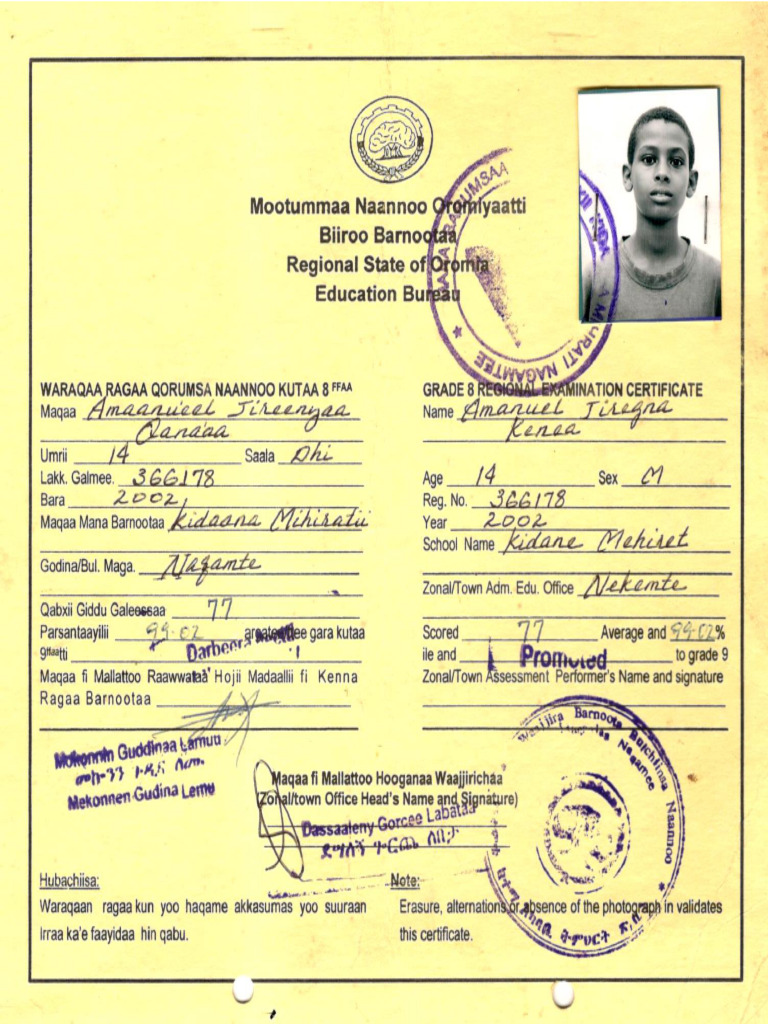 Mootummaa Naannoo Oromiyaatti
Biiroo Barnootaa
Regional State of Oromia
Education Bureau
WARAQAA RAGAA QORUMSA NAANNOO KUTAA 8 FFAA
Maqaa Amaanu'eel Jireenyaa
Qana'aa
Umrii 14 Saala Dhi
Lakk. Galmee. 366178
Bara 2002
Maqaa Mana Barnootaa Kidaana Mihiratii
Godina/Bul. Maga. Naqamte
Qabxii Giddu Galeessaa 77
Parsantaayilii 99.02 argatee gara kutaa
9ffaatti Darbeera
Maqaa fi Mallattoo Raawwataa Hojii Madaallii fi Kenna
Ragaa Barnootaa
GRADE 8 REGIONAL EXAMINATION CERTIFICATE
Name Amanuel Jiregna
Kenea
Age 14 Sex M
Reg. No. 366178
Year 2002
School Name Kidane Mehiret
Zonal/Town Adm. Edu. Office Nekemte
Scored 77 Average and 99.02%
ile and Promoted to grade 9
Zonal/Town Assessment Performer's Name and signature
Mokonnin Guddinaa Lamuu
መኮንን ጉዲና ለሙ
Mekonnen Gudina Lemu
Maqaa fi Mallattoo Hooganaa Waajjirichaa
(Zonal/town Office Head's Name and Signature)
Dassaaleny Gorcee Labataa
ደሣለኝ ጎርጨ ለበታ
Hubachiisa:
Waraqaan ragaa kun yoo haqame akkasumas yoo suuraan
Irraa ka'e faayidaa hin qabu.
Note:
Erasure, alternations or absence of the photograph in validates
this certificate.